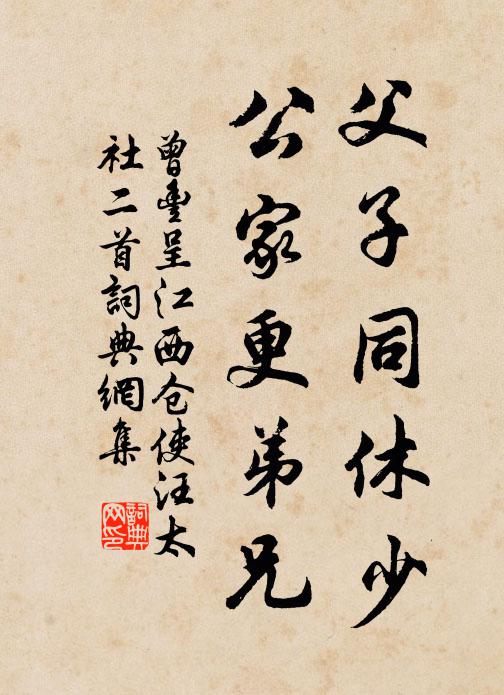 父子同休少
公家更弟兄
曾豐呈江西仓使汪太
社二首詞典網集
詞典网印